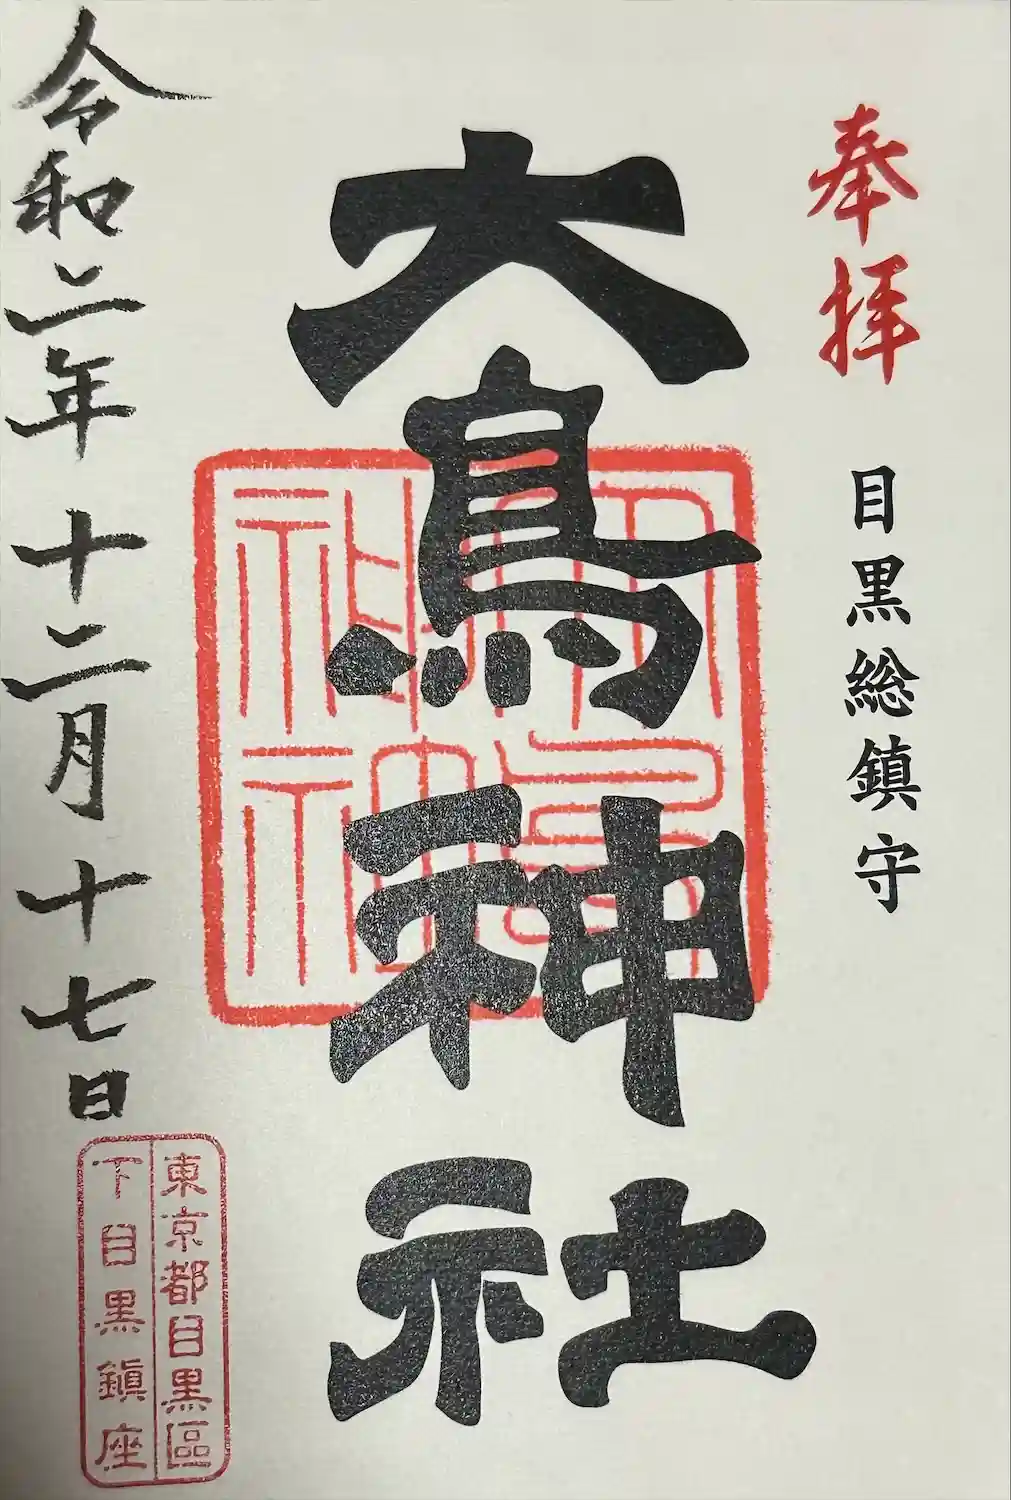 奉拝
目黒総鎮守
大鳥神社
大鳥神社
令和二年十二月十七日
東京都目黒區
下目黒鎮座